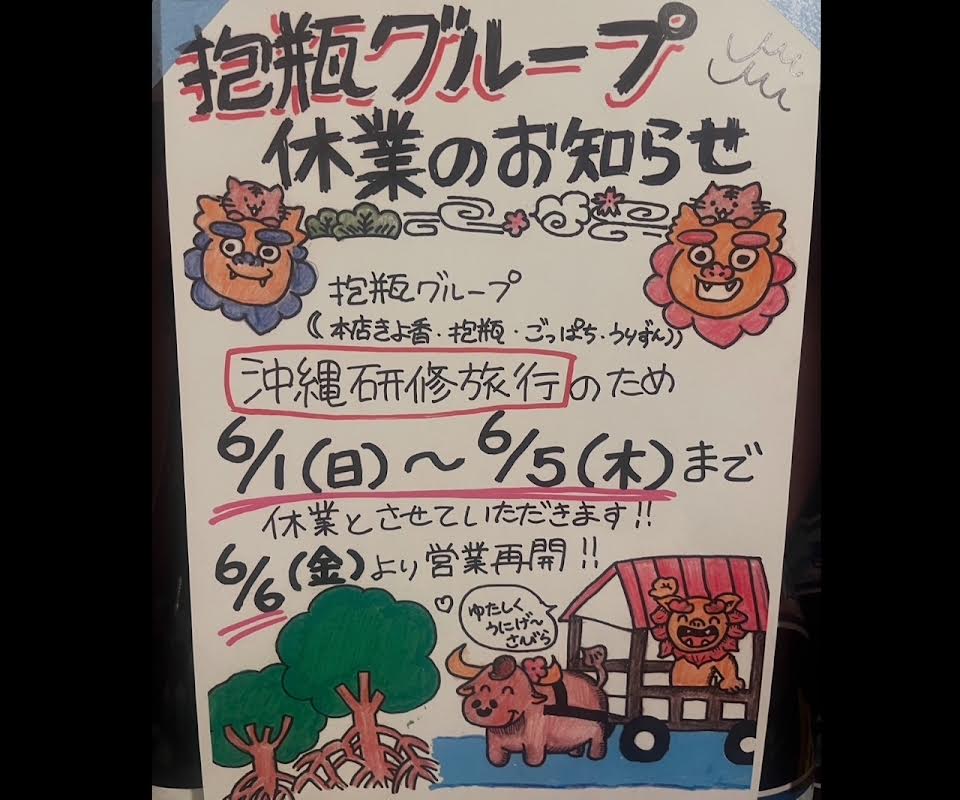 抱瓶グループ
休業のお知らせ
抱瓶グループ
((本店きよ香・抱瓶・ごっぱち・うりずん))
沖縄研修旅行のため
6/1(日)～6/5(木)まで
休業とさせていただきます!!
6/6(金)より営業再開!!
ゆたしく
うにげ～
さびら